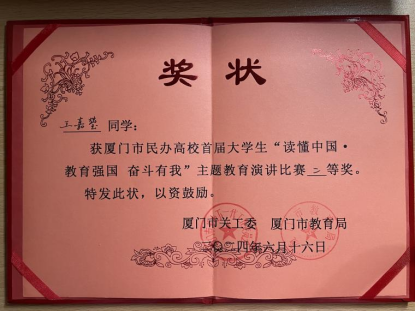 奖状
王嘉莹 同学：
获厦门市民办高校首届大学生“读懂中国·
教育强国 奋斗有我”主题教育演讲比赛二等奖。
特发此状，以资鼓励。
厦门市关工委 厦门市教育局
二〇二四年六月十六日